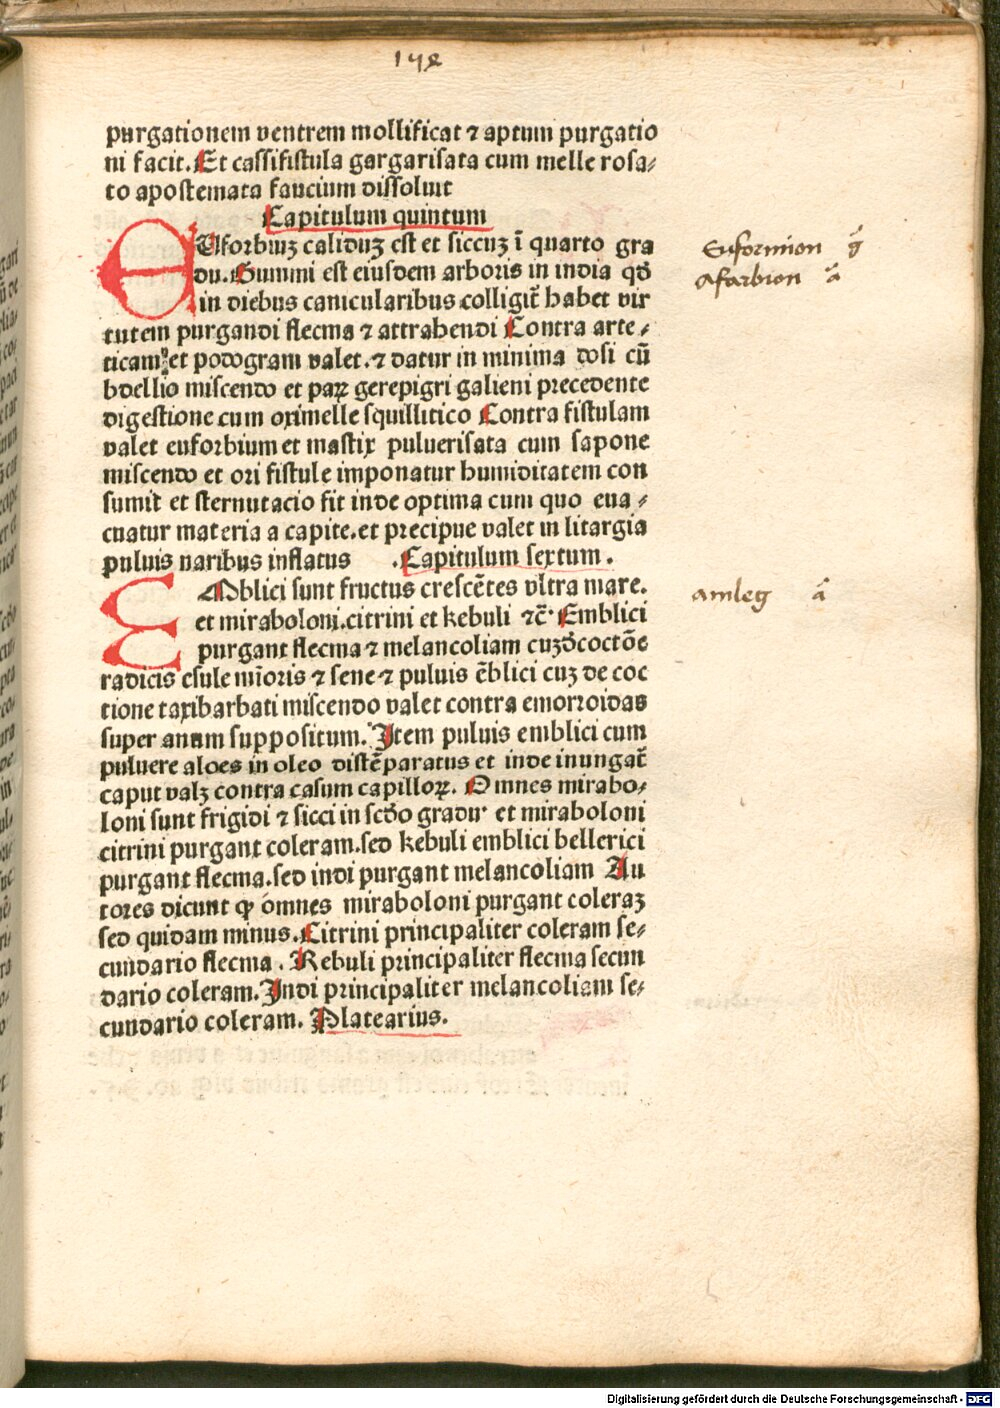 purgationem ventrem mollificat ⁊ aptum purgatio
ni facit. Et cassifistula gargarisata cum melle rosa-
to apostemata faucium dissoluit
Capitulum quintum
EUforbiuꝫ caliduꝫ est et siccuꝫ ī quarto gra
du. Gummi est eiusdem arboris in india qđ
in diebus canicularibus colligit̄ habet vir
tutem purgandi flecma ⁊ attrahendi Contra arte-
ticam et podogram valet. ⁊ datur in minima dosi cū
bdellio miscendo et paꝝ gerepigri galieni precedente
digestione cum oximelle squillitico Contra fistulam
valet euforbium et mastix puluerisata cum sapone
miscendo et ori fistule imponatur humiditatem con
sumit et sternutacio fit inde optima cum quo eua-
cuatur materia a capite. et precipue valet in litargia
puluis naribus inflatus .Capitulum sextum.
EMblici sunt fructus crescētes vltra mare.
et miraboloni. citrini et kebuli ⁊c̄. Emblici
purgant flecma ⁊ melancoliam cuꝫ đcoctōe
radicis esule mīoris ⁊ sene ⁊ puluis ēblici cuꝫ de coc
tione taxibarbati miscendo valet contra emorroidas
super anum suppositum. Item puluis emblici cum
puluere aloes in oleo distēparatus et inde inungat̄
caput valꝫ contra casum capilloꝝ. Omnes mirabo-
loni sunt frigidi ⁊ sicci in scđo gradu. et miraboloni
citrini purgant coleram. sed kebuli emblici bellerici
purgant flecma. sed indi purgant melancoliam Au
tores dicunt ꝙ omnes miraboloni purgant coleraꝫ
sed quidam minus. Citrini principaliter coleram se-
cundario flecma. Kebuli principaliter flecma secun
dario coleram. Indi principaliter melancoliam se-
cundario coleram. Platearius.
Euforinion g̃
Afarbion ã
amleg ã
Digitalisierung gefördert durch die Deutsche Forschungsgemeinschaft - DFG